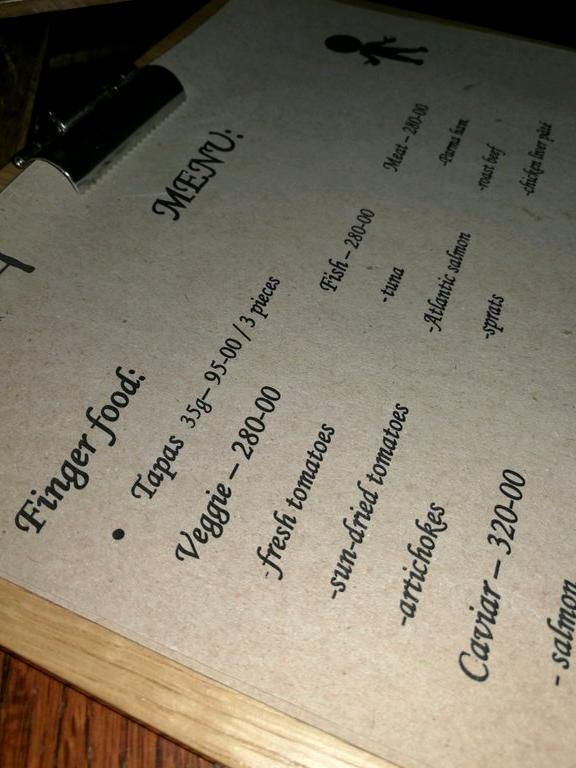 MENU:
Finger food:
• Tapas 35g– 95-00 / 3 pieces
Veggie – 280-00
-fresh tomatoes
-sun-dried tomatoes
-artichokes
Caviar – 320-00
- salmon
Fish – 280-00
-tuna
-Atlantic salmon
-sprats
Meat – 280-00
-Parma ham
-roast beef
-chicken liver pâté